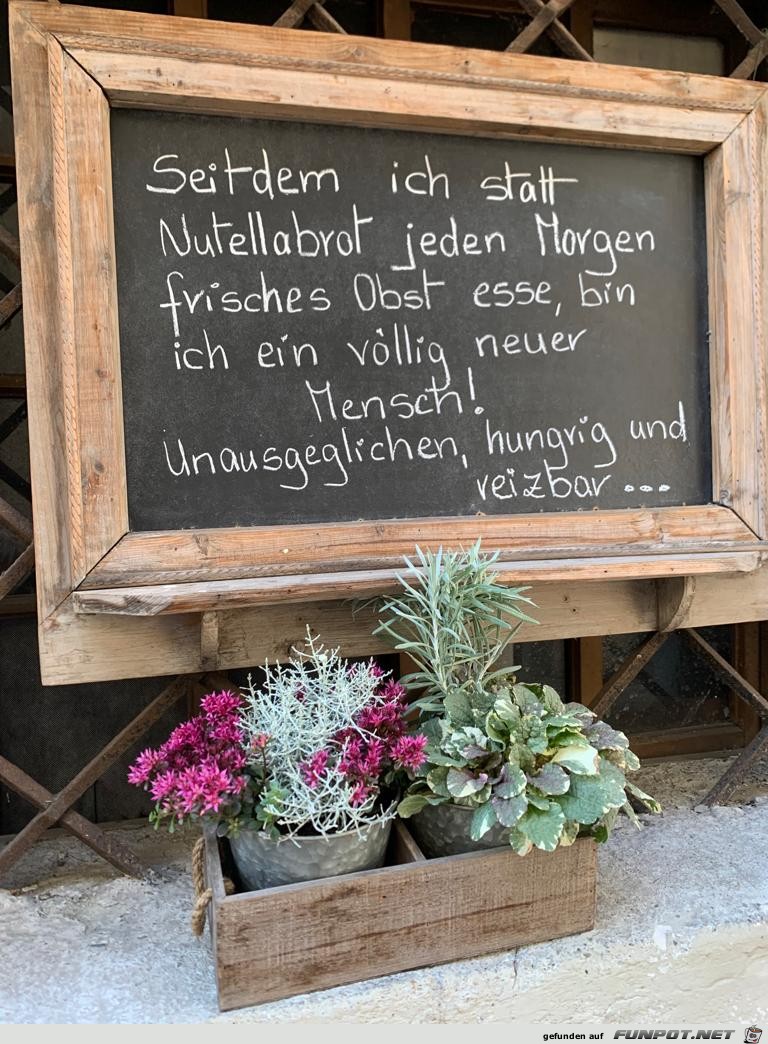 Seitdem ich statt
Nutellabrot jeden Morgen
frisches Obst esse, bin
ich ein völlig neuer
Mensch!
Unausgeglichen, hungrig und
reizbar ...
gefunden auf FUNPOT.NET